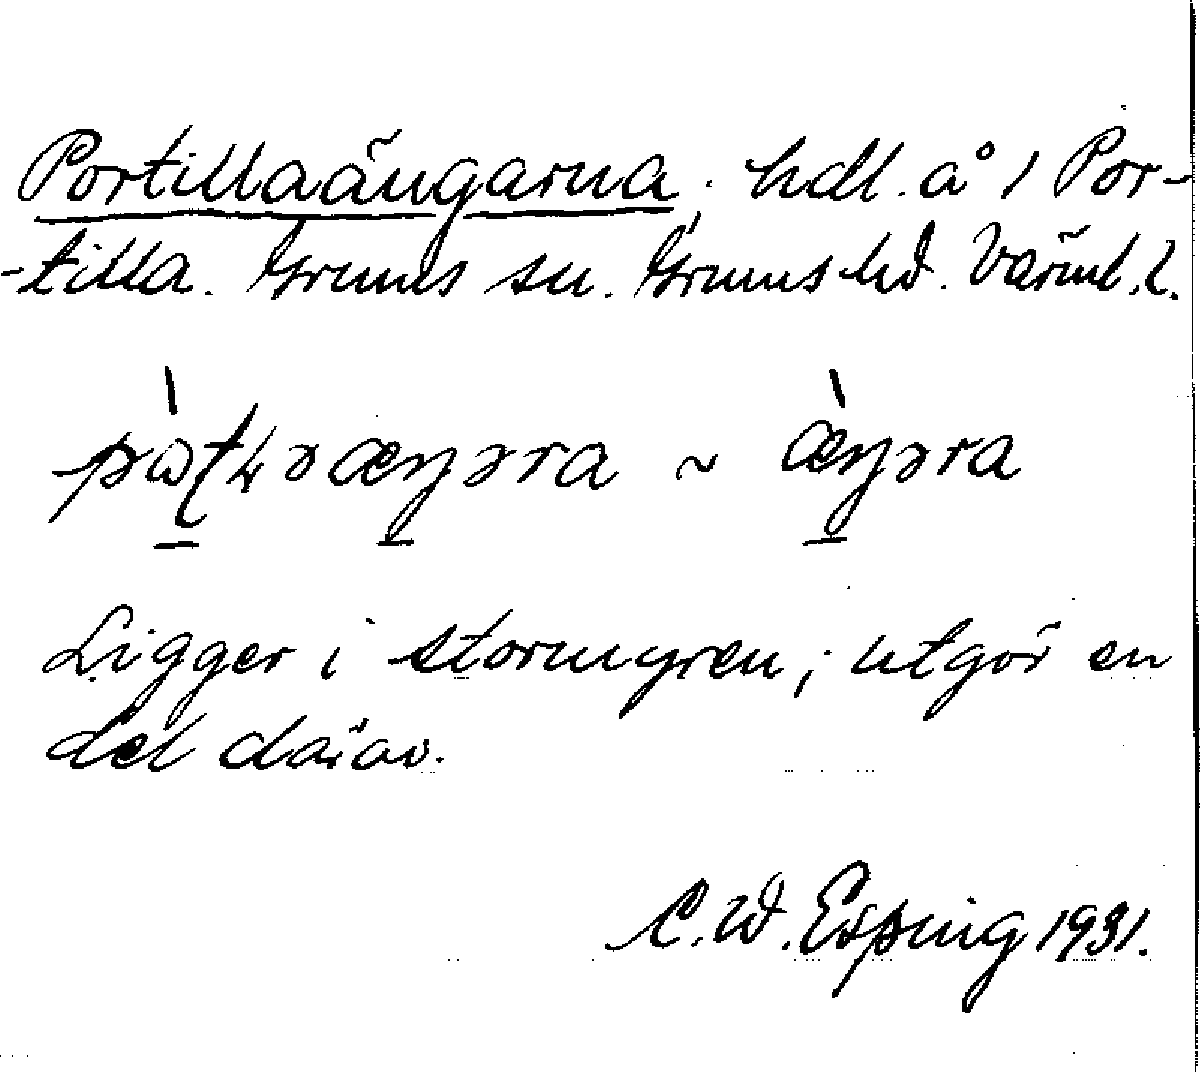 Portillaängarna. hdl. å 1 Por-
-tilla. Grums sn. Grums hd. Värml. l.
Ligger i stormyren; utgör en
del därav.
C. W. Esping 1931.